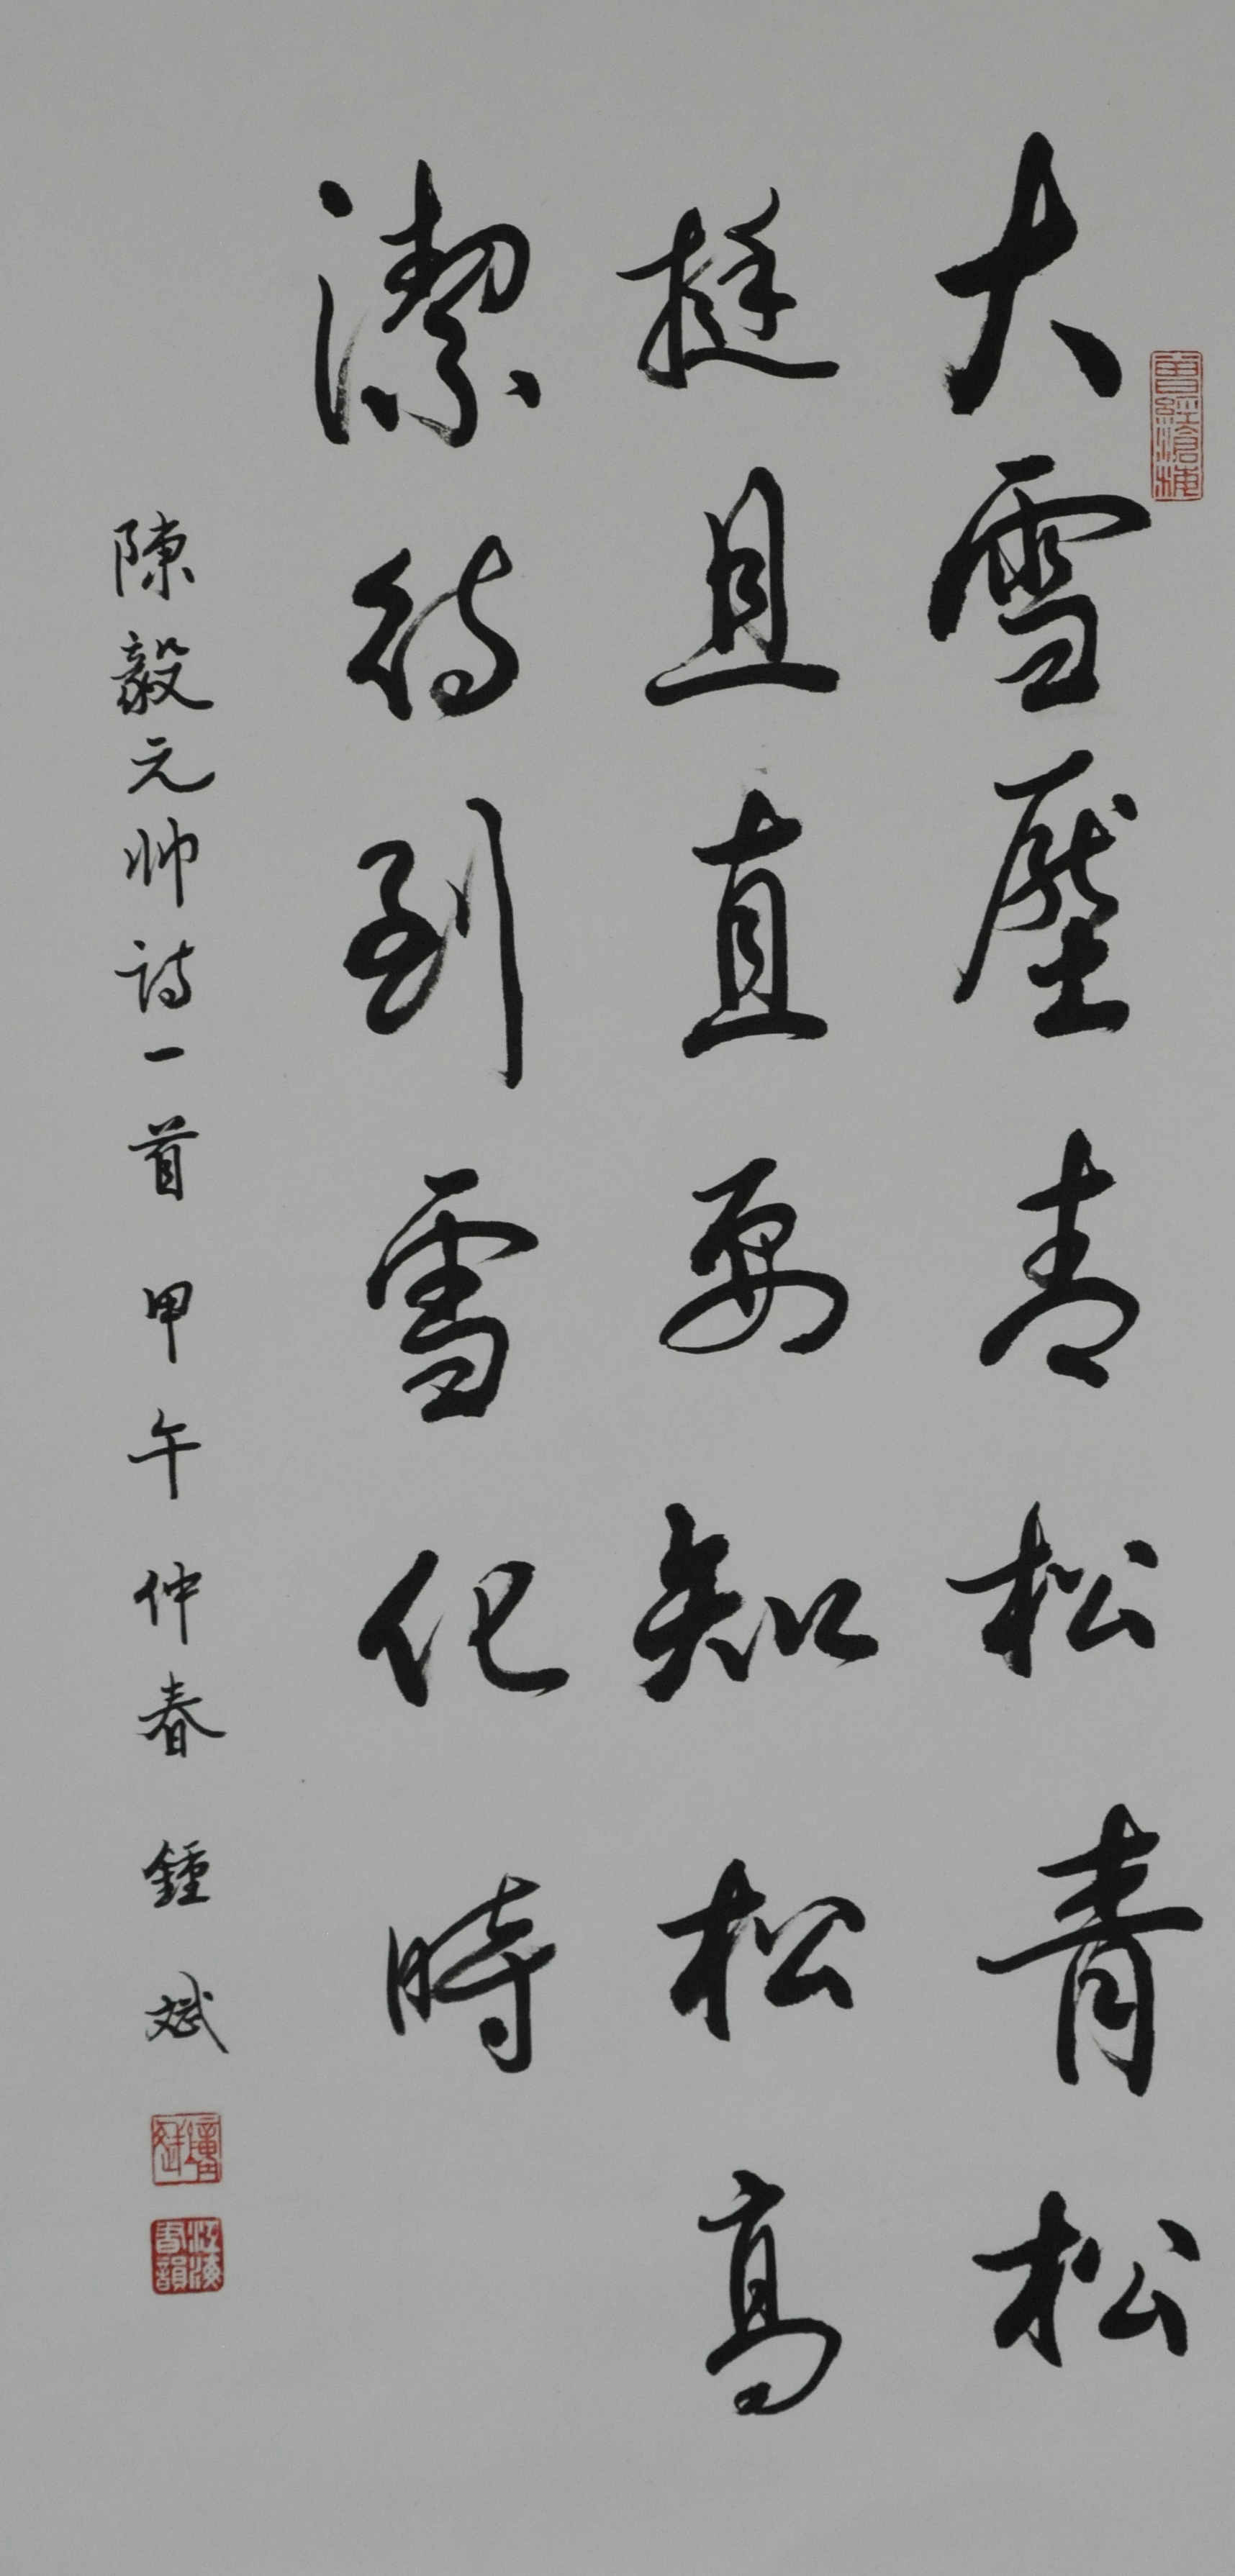 大雪壓青松青松
挺且直要知松高
潔待到雪化時
陳毅元帅詩一首甲午仲春鍾斌
曾經滄海
江海書韻